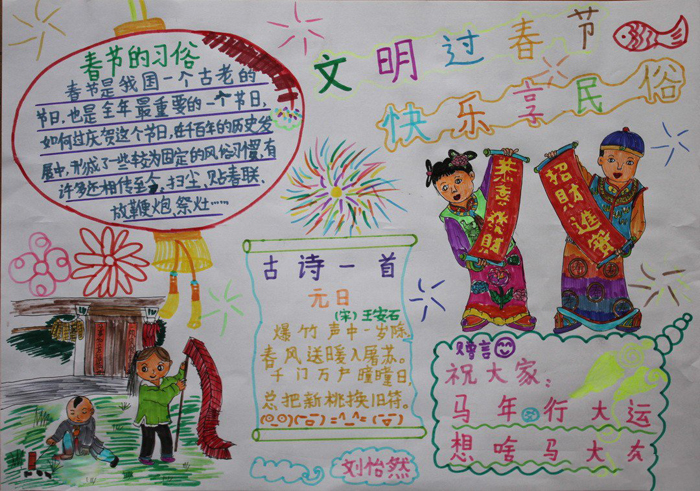 文明过春节
快乐享民俗
春节的习俗
春节是我国一个古老的
节日,也是全年最重要的一个节日,
如何过庆贺这个节日,在千百年的历史发
展中,形成了一些较为固定的风俗习惯,有
许多还相传至今,扫尘、贴春联、
放鞭炮,祭灶……
恭喜發財
招財進寶
古诗一首
元日
(宋)王安石
爆竹声中一岁除,
春风送暖入屠苏。
千门万户曈曈日,
总把新桃换旧符。
赠言
祝大家:
马年行大运
想啥马大
刘怡然